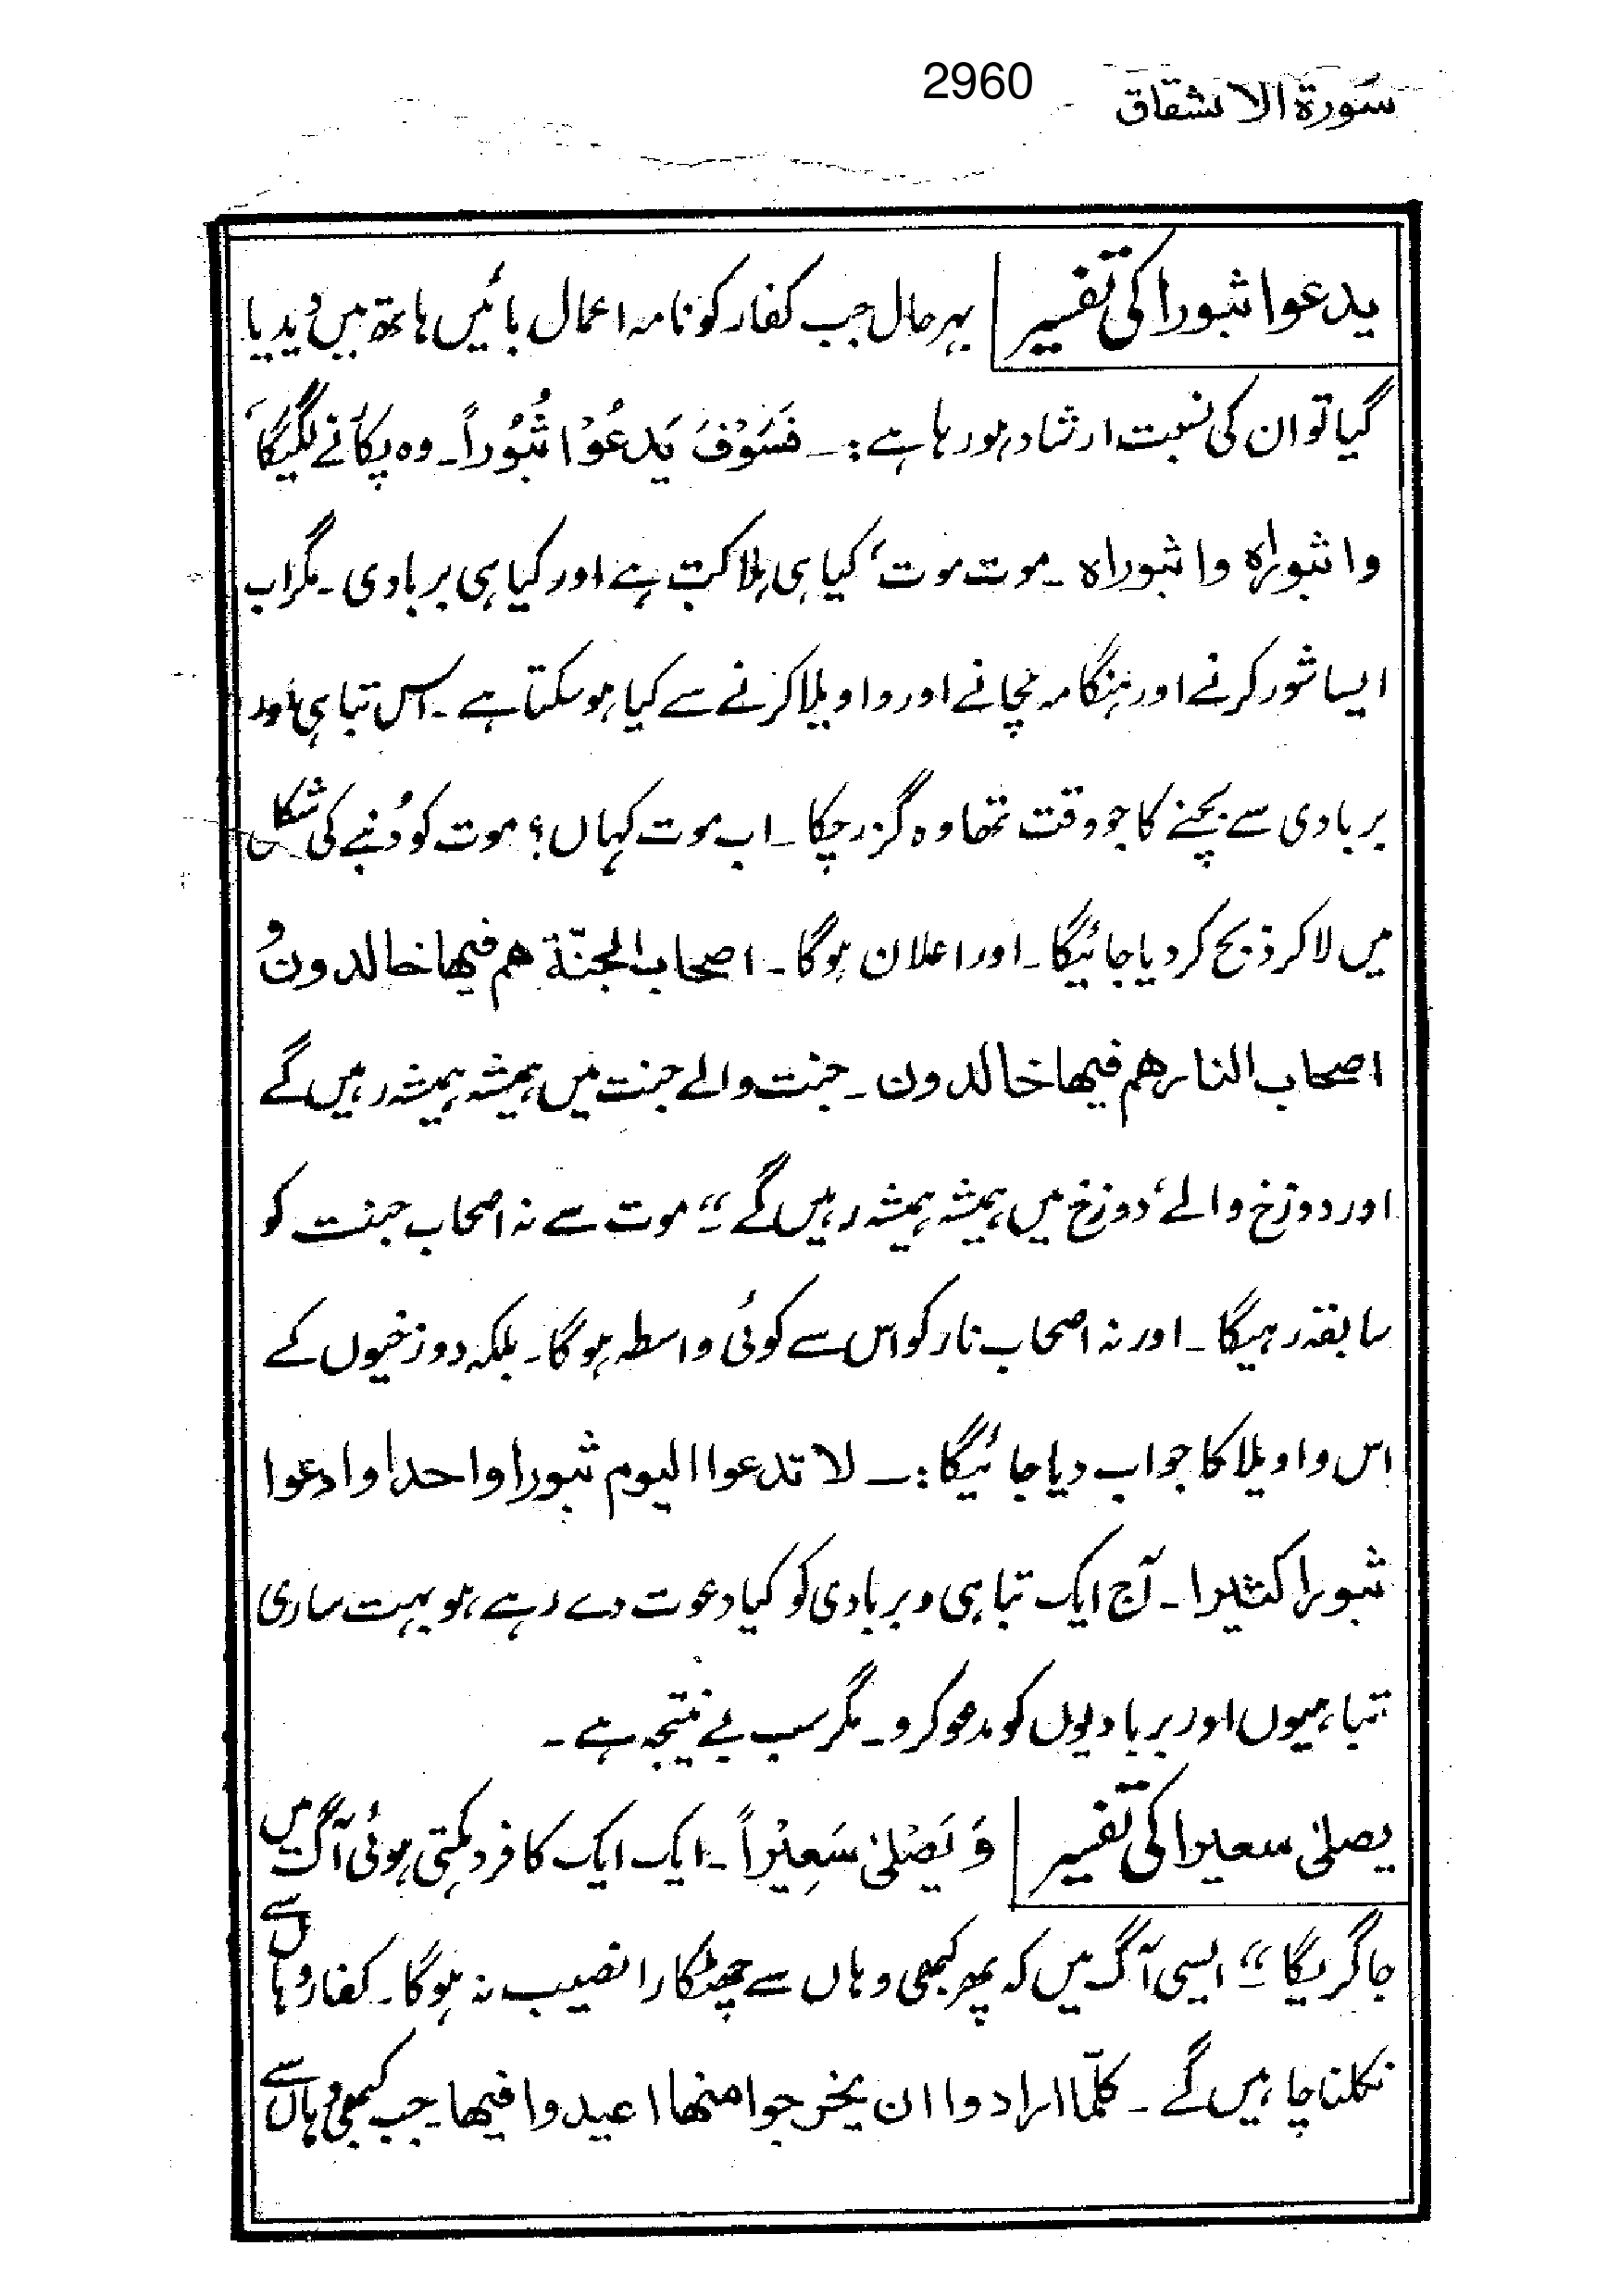 2960
سورۃ الانشقاق
یدعوا ثبورا کی تفسیر
بہرحال جب کفار کو نامہ اعمال بائیں ہاتھ میں دیدیا
گیا تو ان کی نسبت ارشاد ہو رہا ہے :۔ فَسَوْفَ یَدعُوْا ثُبُوْراً۔ وہ پکارنے لگیگا
واثبوراہ واثبوراہ ۔ موت موت، کیا ہی ہلاکت ہے اور کیا ہی بربادی ۔ مگر اب
ایسا شور کرنے اور ہنگامہ مچانے اور واویلا کرنے سے کیا ہو سکتا ہے ۔ اس تباہی اور
بربادی سے بچنے کا جو وقت تھا وہ گزر چکا ۔ اب موت کہاں؟ موت کو دُنبے کی شکل
میں لا کر ذبح کر دیا جائیگا ۔ اور اعلان ہوگا ۔ اصحاب الجنّۃ ھم فیھا خالدون و
اصحاب النار ھم فیھا خالدون ۔ جنت والے جنت میں ہمیشہ ہمیشہ رہیں گے
اور دوزخ والے، دوزخ میں ہمیشہ ہمیشہ رہیں گے ۔“ موت سے نہ اصحاب جنت کو
سابقہ رہیگا ۔ اور نہ اصحاب نار کو اس سے کوئی واسطہ ہوگا ۔ بلکہ دوزخیوں کے
اس واویلا کا جواب دیا جائیگا :۔ لا تدعوا الیوم ثبورا واحدا وادعوا
ثبورا کثیرا ۔ آج ایک تباہی و بربادی کو کیا دعوت دے رہے ہو بہت ساری
تباہیوں اور بربادیوں کو مدعو کرو ۔ مگر سب بے نتیجہ ہے ۔
یصلیٰ سعیرا کی تفسیر
وَ یَصْلیٰ سَعِیْراً ۔ ایک ایک کافر دہکتی ہوئی آگ میں
جا گریگا ۔“ ایسی آگ میں کہ پھر کبھی وہاں سے چھٹکارا نصیب نہ ہوگا ۔ کفار وہاں سے
نکلنا چاہیں گے ۔ کلّما ارادوا ان یخرجوا منھا اعیدوا فیھا ۔ جب کبھی وہاں سے